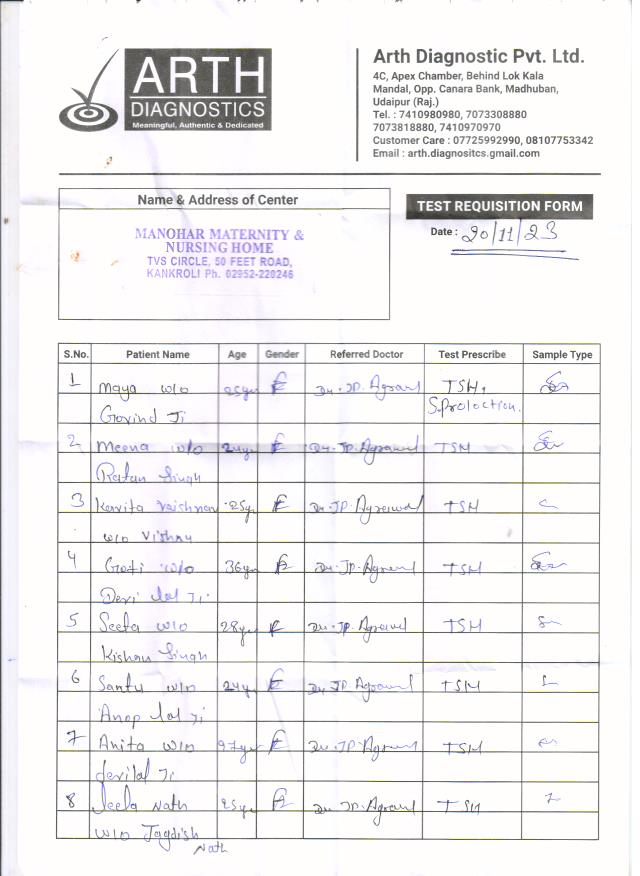 ARTH
DIAGNOSTICS
Meaningful, Authentic & Dedicated
Arth Diagnostic Pvt. Ltd.
4C, Apex Chamber, Behind Lok Kala
Mandal, Opp. Canara Bank, Madhuban,
Udaipur (Raj.)
Tel. : 7410980980, 7073308880
7073818880, 7410970970
Customer Care : 07725992990, 08107753342
Email : arth.diagnositcs.gmail.com
Name & Address of Center
MANOHAR MATERNITY &
NURSING HOME
TVS CIRCLE, 50 FEET ROAD,
KANKROLI Ph. 02952-220246
TEST REQUISITION FORM
Date : 20/11/23
S.No. Patient Name Age Gender Referred Doctor Test Prescribe Sample Type
1 Maya w/o 25yr F Dr. J.P. Agrawal TSH,
Govind Ji S.prolactin.
2 Meena w/o 24yr F Dr. J.P. Agrawal TSH
Ratan Singh
3 Kavita Vaishnav 25yr F Dr. J.P. Agrawal TSH
w/o Vishnu
4 w/o 36yr F Dr. J.P. Agrawal TSH
Devi lal Ji
5 Seeta w/o 28yr F Dr. J.P. Agrawal TSH
Kishan Singh
6 Santu w/o 24yr F Dr. J.P. Agrawal TSH
Anop lal Ji
7 Anita w/o F Dr. J.P. Agrawal TSH
devilal Ji
8 Leela Nath 25yr F Dr. J.P. Agrawal TSH
w/o Jagdish
Nath